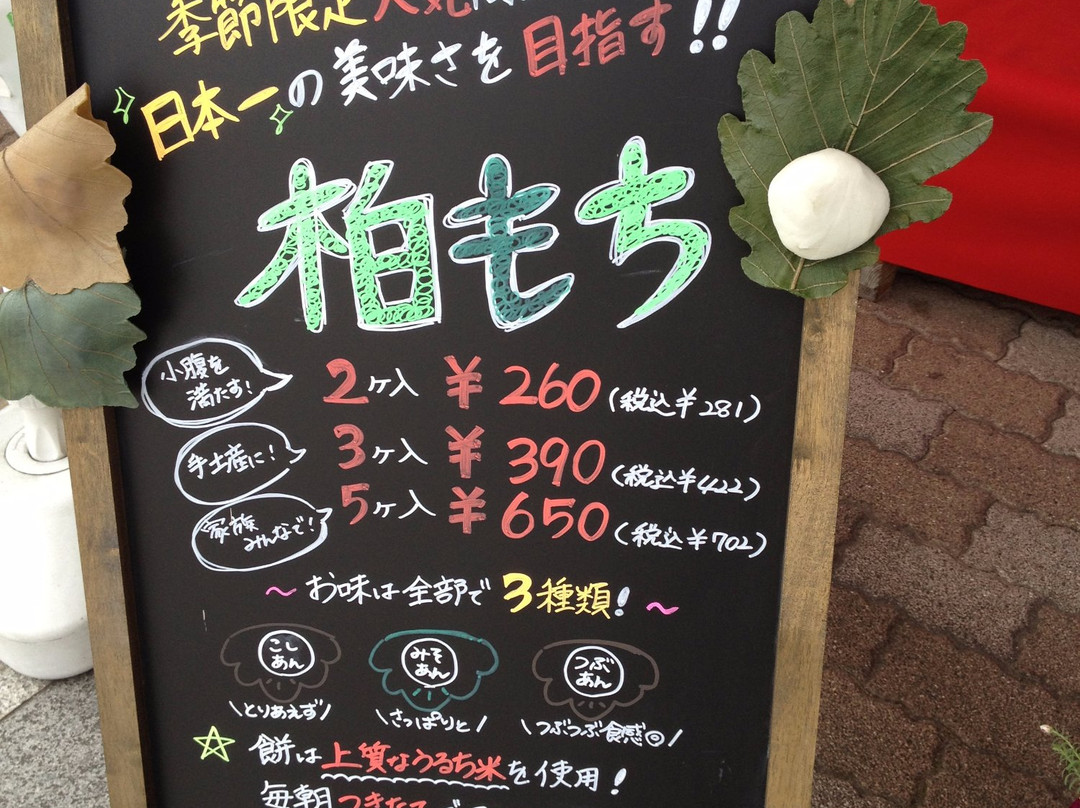 季節限定人気
日本一の美味さを目指す!!
柏もち
小腹を
満たす!
2ヶ入 ¥260 (税込¥281)
手土産に!
3ヶ入 ¥390 (税込¥422)
家族
みんなで!
5ヶ入 ¥650 (税込¥702)
～お味は全部で3種類!～
こし
あん
みそ
あん
つぶ
あん
\とりあえず/
\さっぱりと/
\つぶつぶ食感◎/
☆餅は上質なうるち米を使用!
毎朝つきたて